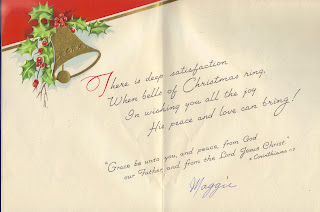 There is deep satisfaction
When bells of Christmas ring,
In wishing you all the joy
His peace and love can bring!
"Grace be unto you, and peace, from God
our Father, and from the Lord Jesus Christ"
Corinthians
Maggie